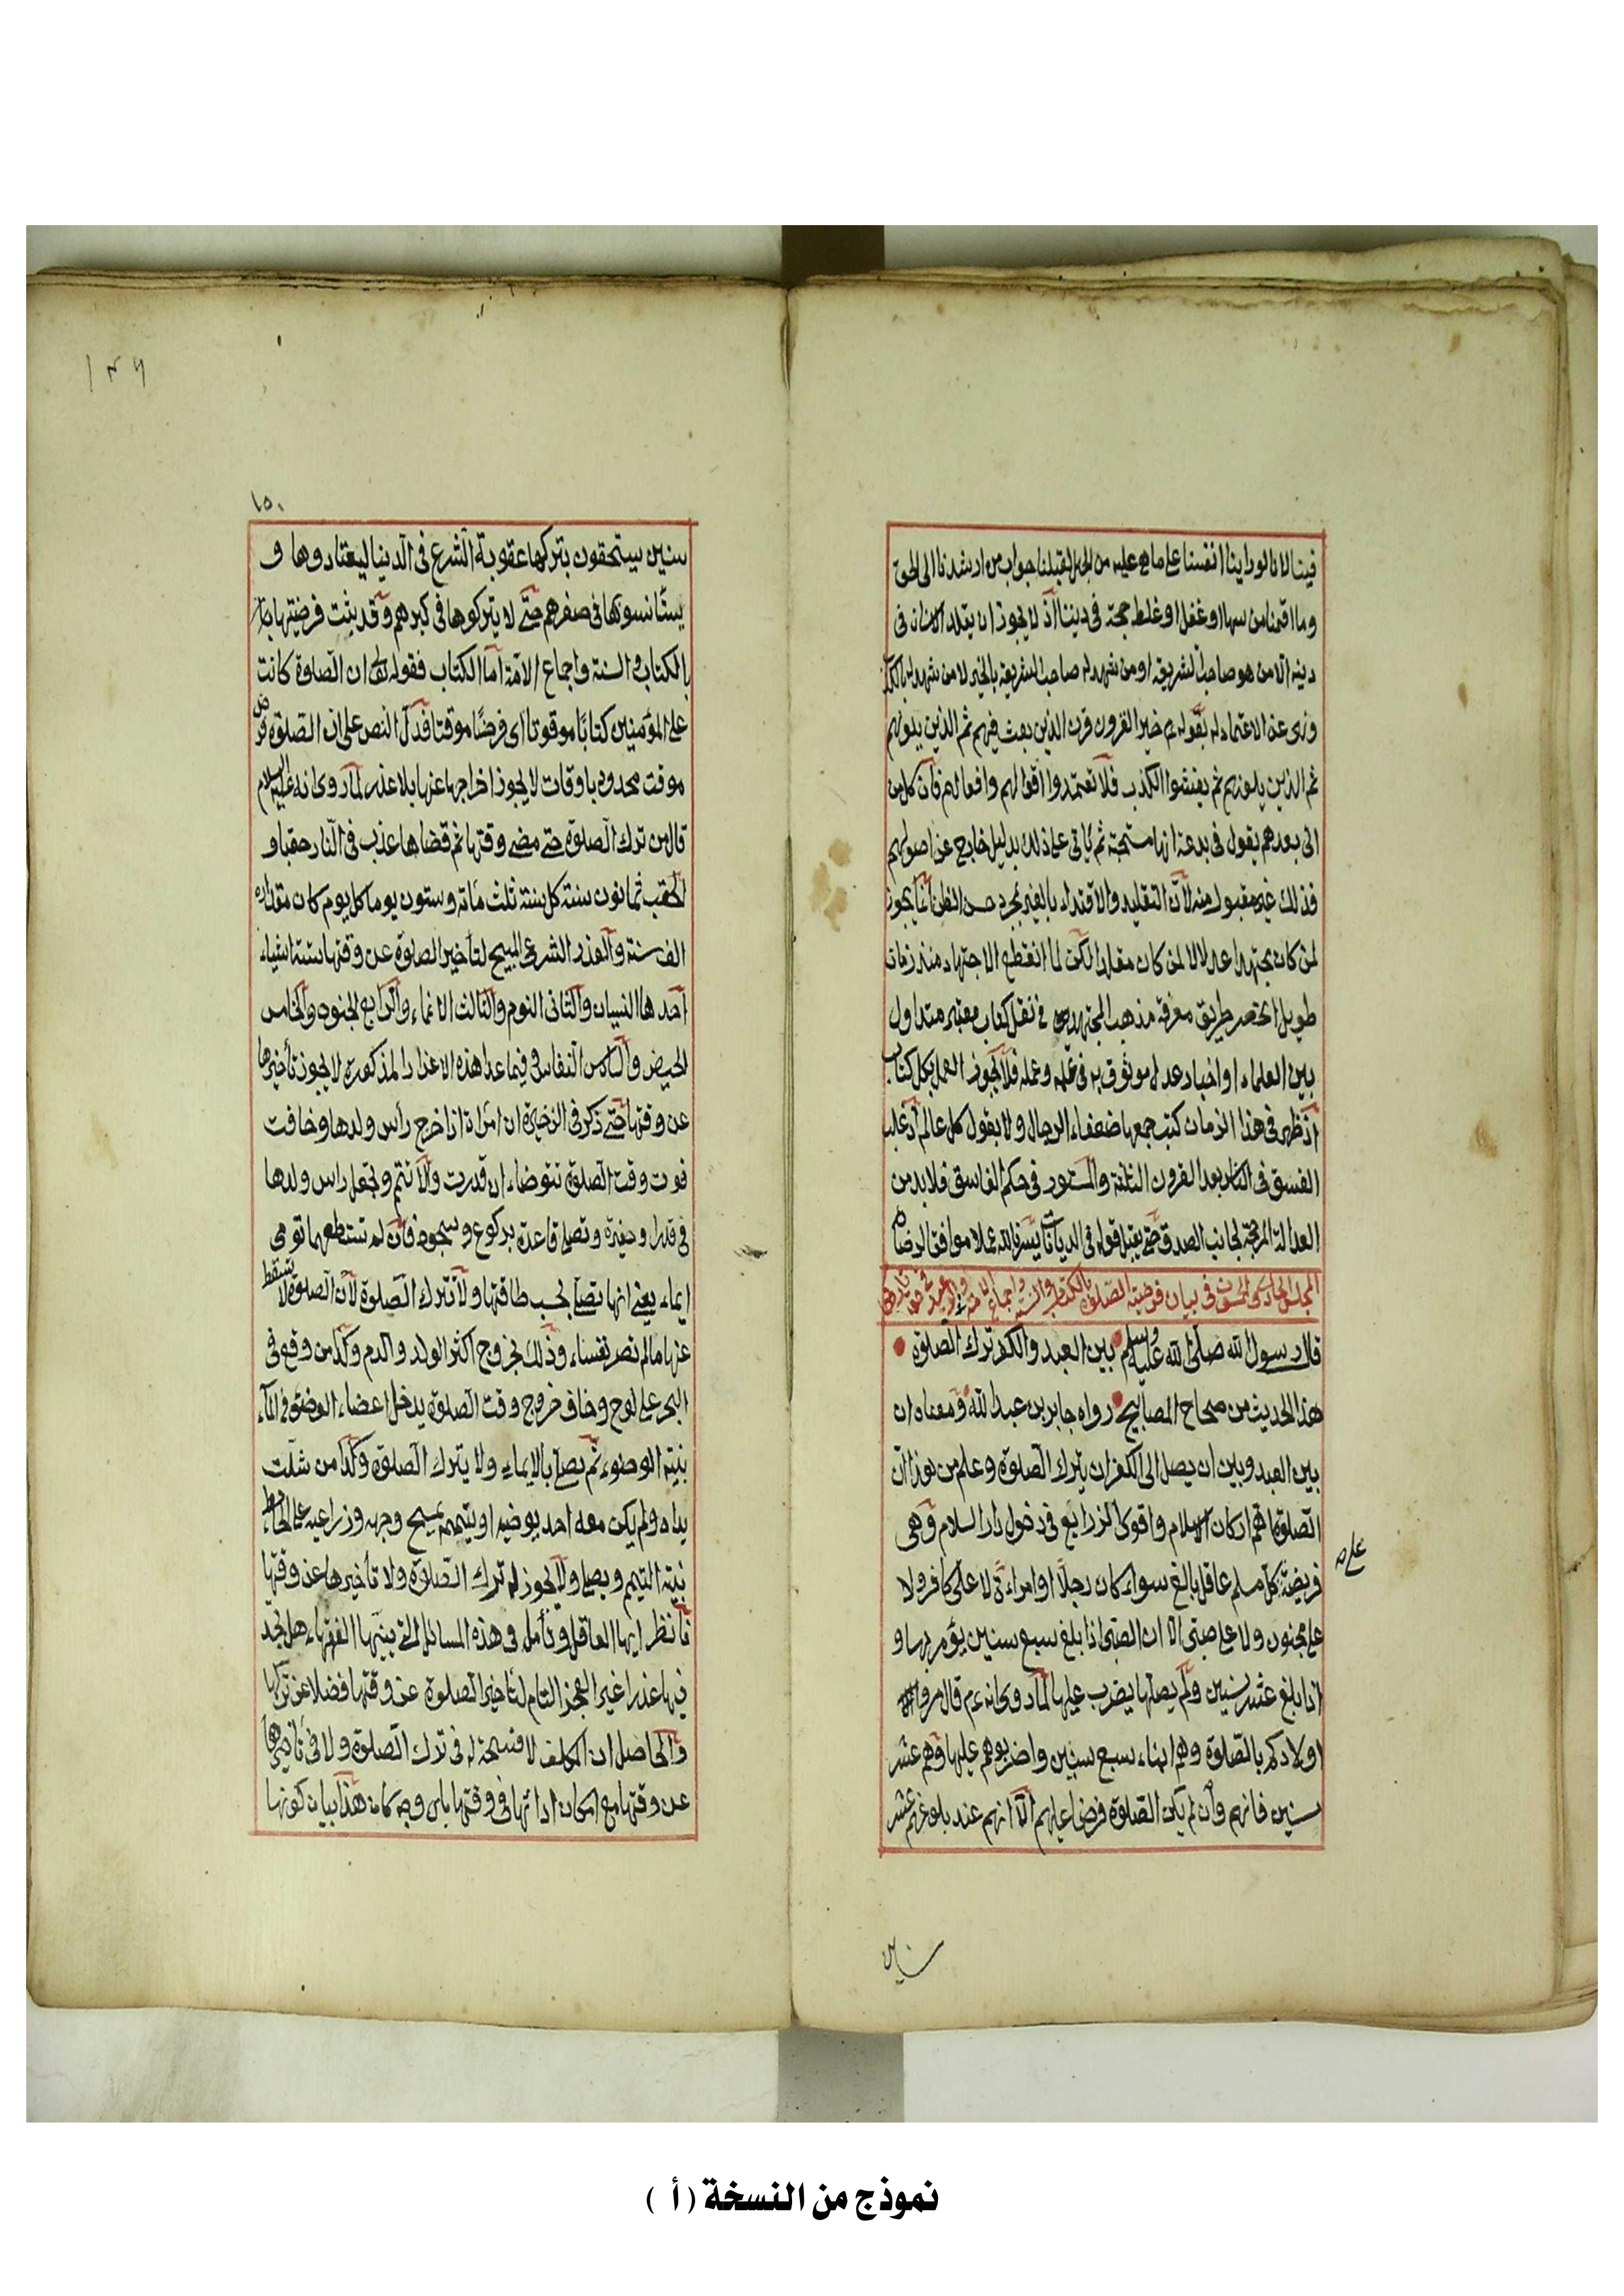 فينا لانا لو راينا انفسنا على ما هى عليه من الجهل لقبلنا جواب من ارشدنا الى الحق
وما اقمنا من سها او غفل او غلط حجة فى ديننا اذ لا يجوز ان يقلد الانسان فى
دينه الا من هو صاحب الشريعة او من شهد له صاحب الشريعة بالخير لا من شهد له بالكذب
ونهى عن الاعتماد له بقوله خير القرون قرن الذين بعثت فيهم ثم الذين يلونهم
ثم الذين يلونهم ثم يفشوا الكذب فلا تعتمدوا اقوالهم وافعالهم فان كل من
اتى بعدهم يقول فى بدعة انها مستحبة ثم ياتى على ذلك بدليل خارج عن اصولهم
فذلك غير مقبول منه لان التقليد والاقتداء بالغير بمجرد حسن الظن انما يجوز
لمن كان مجتهدا عدلا لا لمن كان مقلدا لكن لما انقطع الاجتهاد منذ زمان
طويل انحصر طريق معرفة مذهب المجتهدين فى نقل كتاب معتبر متداول
بين العلماء او اخبار عدل موثوق به فى علمه وعمله فلا يجوز العمل بكل كتاب
اذ ظهر فى هذا الزمان كتب جمعها ضعفاء الرجال ولا بقول كل عالم اذ غلب
الفسق فى الناس بعد القرون الثلثة والمستور فى حكم الفاسق فلا بد من
العدالة المرجحة لجانب الصدق حتى يقبل قوله فى الديانات يسرنا الله عملا موافقا لرضاه
المجلس الحادى والخمسون فى بيان فرضية الصلوة بالكتاب والسنة واجماع الامة والوعيد فى حق تاركها
قال رسول الله صلى الله عليه وسلم بين العبد والكفر ترك الصلوة
هذا الحديث من صحاح المصابيح رواه جابر بن عبد الله ومعناه ان
بين العبد وبين ان يصل الى الكفر ان يترك الصلوة وعلم من هذا ان
الصلوة اهم اركان الاسلام واقوى الذرايع فى دخول دار السلام وهى
فريضة كل مسلم عاقل بالغ سواء كان رجلا او امراءة لا على كافر ولا
على مجنون ولا على صبى الا ان الصبى اذا بلغ سبع سنين يؤمر بها و
اذا بلغ عشر سنين ولم يصلها يضرب عليها لما روى انه عم قال مروا
اولادكم بالصلوة وهم ابناء سبع سنين واضربوهم عليها وهم عشر
سنين فانهم وان لم يكن الصلوة فرضا عليهم الا انهم عند بلوغهم عشر
سنين
١٣٦
١٥٠
سنين يستحقون بتركها عقوبة الشرع فى الدنيا ليعتادوها و
يستأنسونها فى صغرهم حتى لا يتركوها فى كبرهم وقد ثبت فرضيتها
بالكتاب والسنة واجماع الامة اما الكتاب فقوله تعالى ان الصلوة كانت
على المؤمنين كتابا موقوتا اى فرضا موقتا فدل النص على ان الصلوة فرض
موقت محدود باوقات لا يجوز اخراجها عنها بلا عذر لما روى انه عليه السلام
قال من ترك الصلوة حتى مضى وقتها ثم قضاها عذب فى النار حقبا و
الحقب ثمانون سنة كل سنة ثلث مائة وستون يوما كل يوم كان مقداره
الف سنة والعذر الشرعى المبيح لتأخير الصلوة عن وقتها ستة اشياء
احدها النسيان والثانى النوم والثالث الاغماء والرابع الجنون والخامس
الحيض والسادس النفاس فى فيما عدا هذه الاعذار المذكورة لا يجوز تأخيرها
عن وقتها حتى ذكر فى الذخيرة ان امرأة اذا خرج رأس ولدها وخافت
فوت وقت الصلوة تتوضاء ان قدرت والا تتيمم وتجعل راس ولدها
فى قدر او حفيرة وتصلى قاعدة بركوع وسجود فان لم تستطعهما تومى
ايماء يعنى انها تصلى بحسب طاقتها ولا تترك الصلوة لان الصلوة لا تسقط
عنها ما لم تصر نفساء وذلك بخروج اكثر الولد والدم وكذا من وقع فى
البحر على لوح وخاف خروج وقت الصلوة يدخل اعضاء الوضوء فى الماء
بنية الوضوء ثم يصلى بالايماء ولا يترك الصلوة وكذا من شلت
يداه ولم يكن معه احد يوضيه او ييممه يمسح وجهه وذراعيه على الحائط
بنية التيمم ويصلى ولا يجوز له ترك الصلوة ولا تأخيرها عن وقتها
فانظر ايها العاقل وتأمل فى هذه المسائل التى بينها الفقهاء هل تجد
فيها عذرا غير العجز التام لتأخير الصلوة عن وقتها فضلا عن تركها
والحاصل ان المكلف لا فسحة له فى ترك الصلوة ولا فى تأخيرها
عن وقتها مع امكان ادائها فى وقتها باى وجه كان هذا بيان كونها
نموذج من النسخة ( أ )